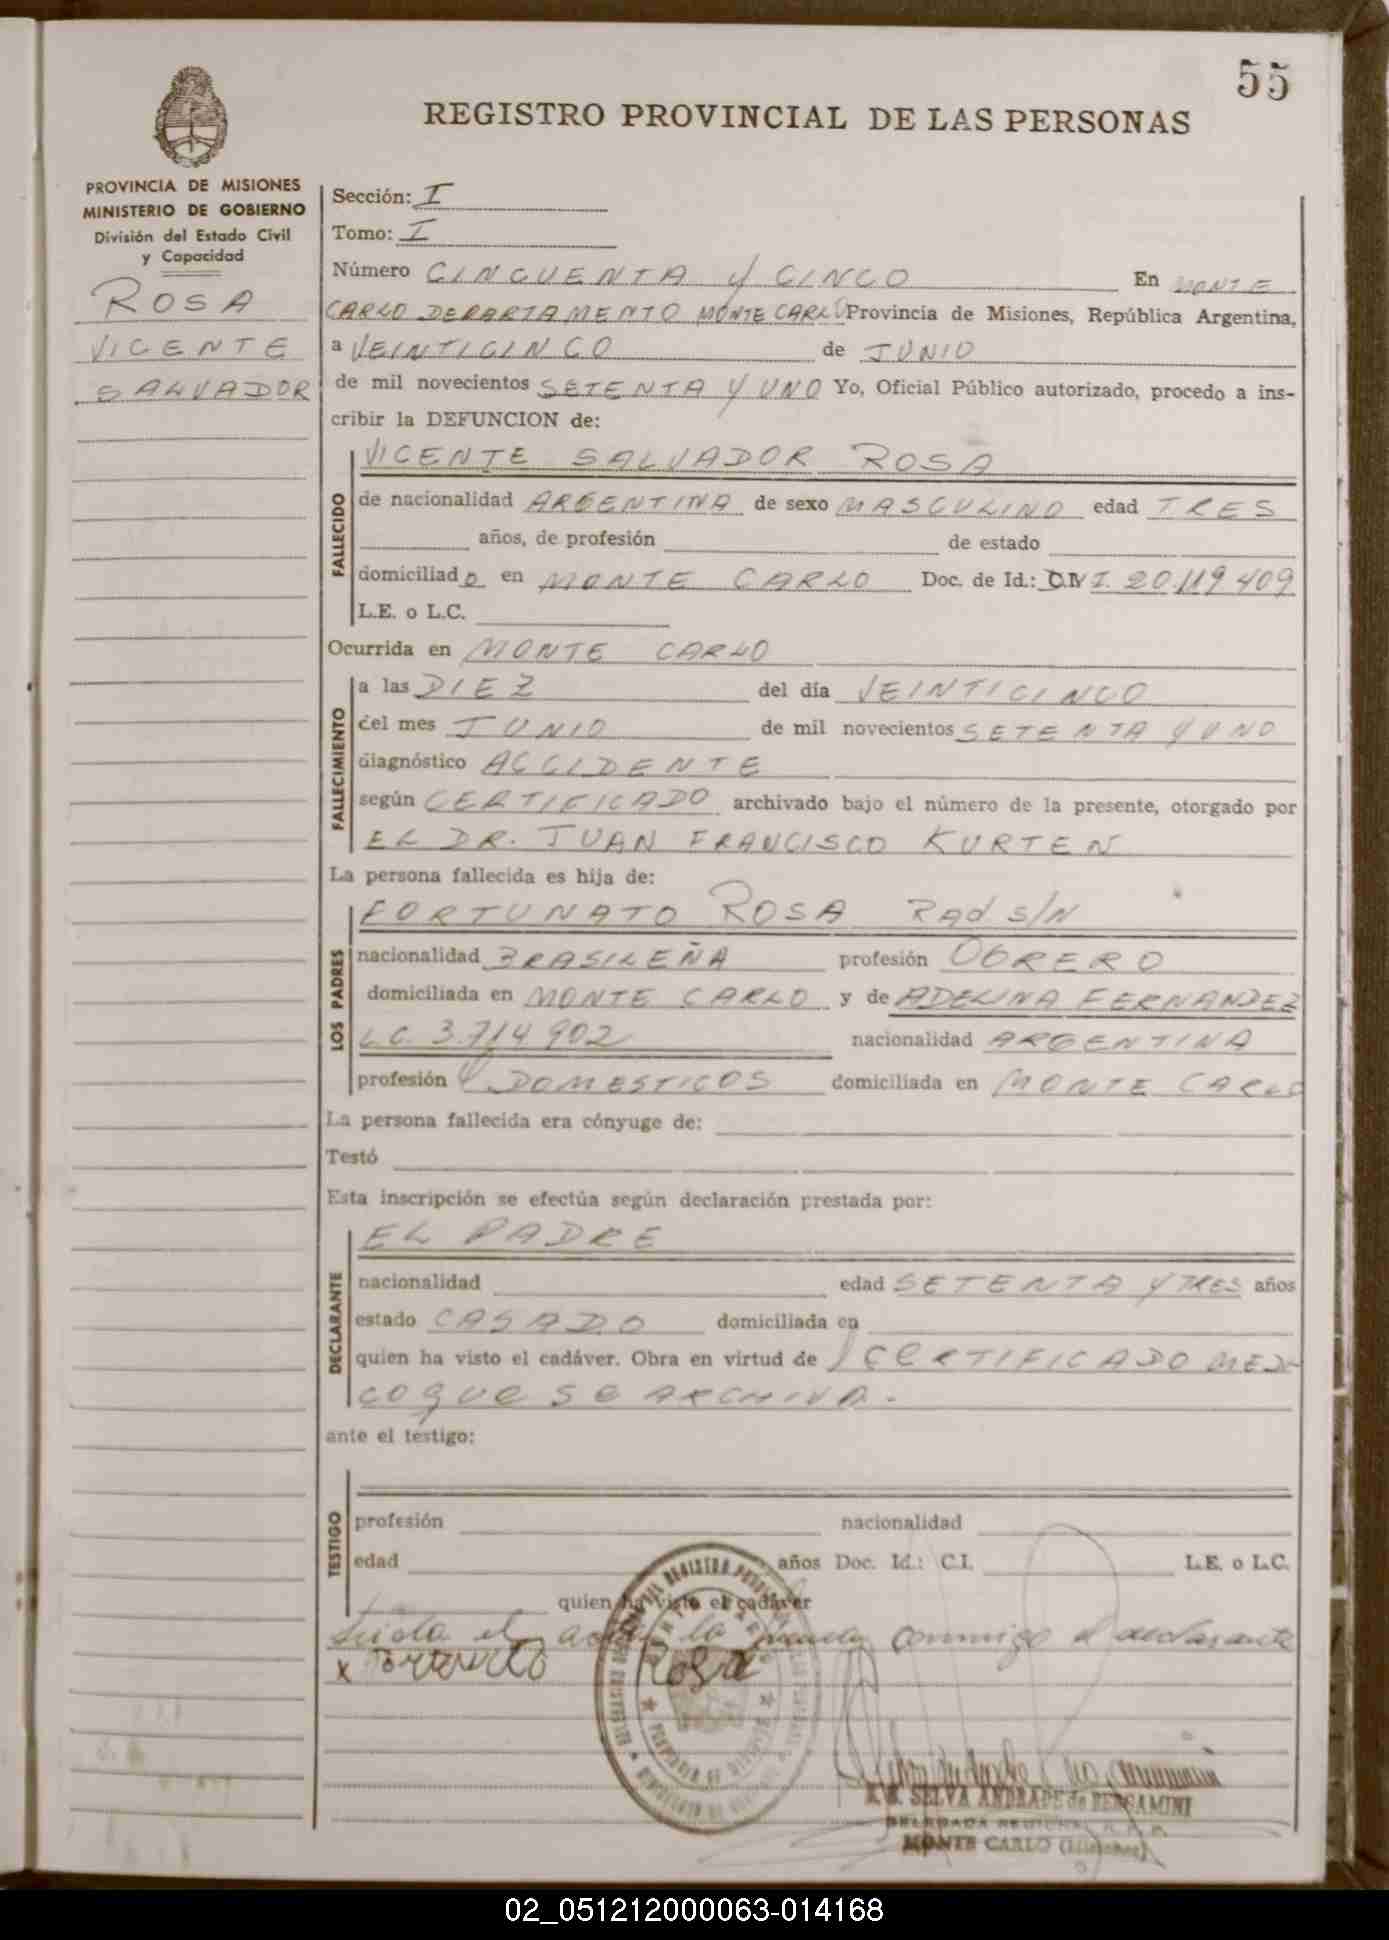 55
REGISTRO PROVINCIAL DE LAS PERSONAS
PROVINCIA DE MISIONES
MINISTERIO DE GOBIERNO
División del Estado Civil
y Capacidad
ROSA
VICENTE
SALVADOR
Sección: I
Tomo: I
Número CINCUENTA Y CINCO En MONTE
CARLO DEPARTAMENTO MONTE CARLO Provincia de Misiones, República Argentina,
a VEINTICINCO de JUNIO
de mil novecientos SETENTA Y UNO Yo, Oficial Público autorizado, procedo a ins-
cribir la DEFUNCION de:
FALLECIDO
VICENTE SALVADOR ROSA
de nacionalidad ARGENTINA de sexo MASCULINO edad TRES
años, de profesión de estado
domiciliado en MONTE CARLO Doc. de Id.: D.N.I. 20.119.409
L.E. o L.C.
Ocurrida en MONTE CARLO
FALLECIMIENTO
a las DIEZ del día VEINTICINCO
del mes JUNIO de mil novecientos SETENTA Y UNO
diagnóstico ACCIDENTE
según CERTIFICADO archivado bajo el número de la presente, otorgado por
EL DR. JUAN FRANCISCO KURTEN
La persona fallecida es hija de:
LOS PADRES
FORTUNATO ROSA RAD S/N
nacionalidad BRASILEÑA profesión OBRERO
domiciliada en MONTE CARLO y de ADELINA FERNANDEZ
L.C. 3.714.902 nacionalidad ARGENTINA
profesión Q. DOMESTICOS domiciliada en MONTE CARLO
La persona fallecida era cónyuge de:
Testó
Esta inscripción se efectúa según declaración prestada por:
DECLARANTE
EL PADRE
nacionalidad edad SETENTA Y TRES años
estado CASADO domiciliada en
quien ha visto el cadáver. Obra en virtud de CERTIFICADO MEDI
CO QUE SE ARCHIVA.-
ante el testigo:
TESTIGO
profesión nacionalidad
edad años Doc. Id.: C.I. L.E. o L.C.
quien ha visto el cadáver
Leida el acta la firma conmigo el declarante
x Fortunato Rosa
SELVA ANDRADE de BERGAMINI
DELEGADA REGIONAL
MONTE CARLO (Misiones)
02_051212000063-014168